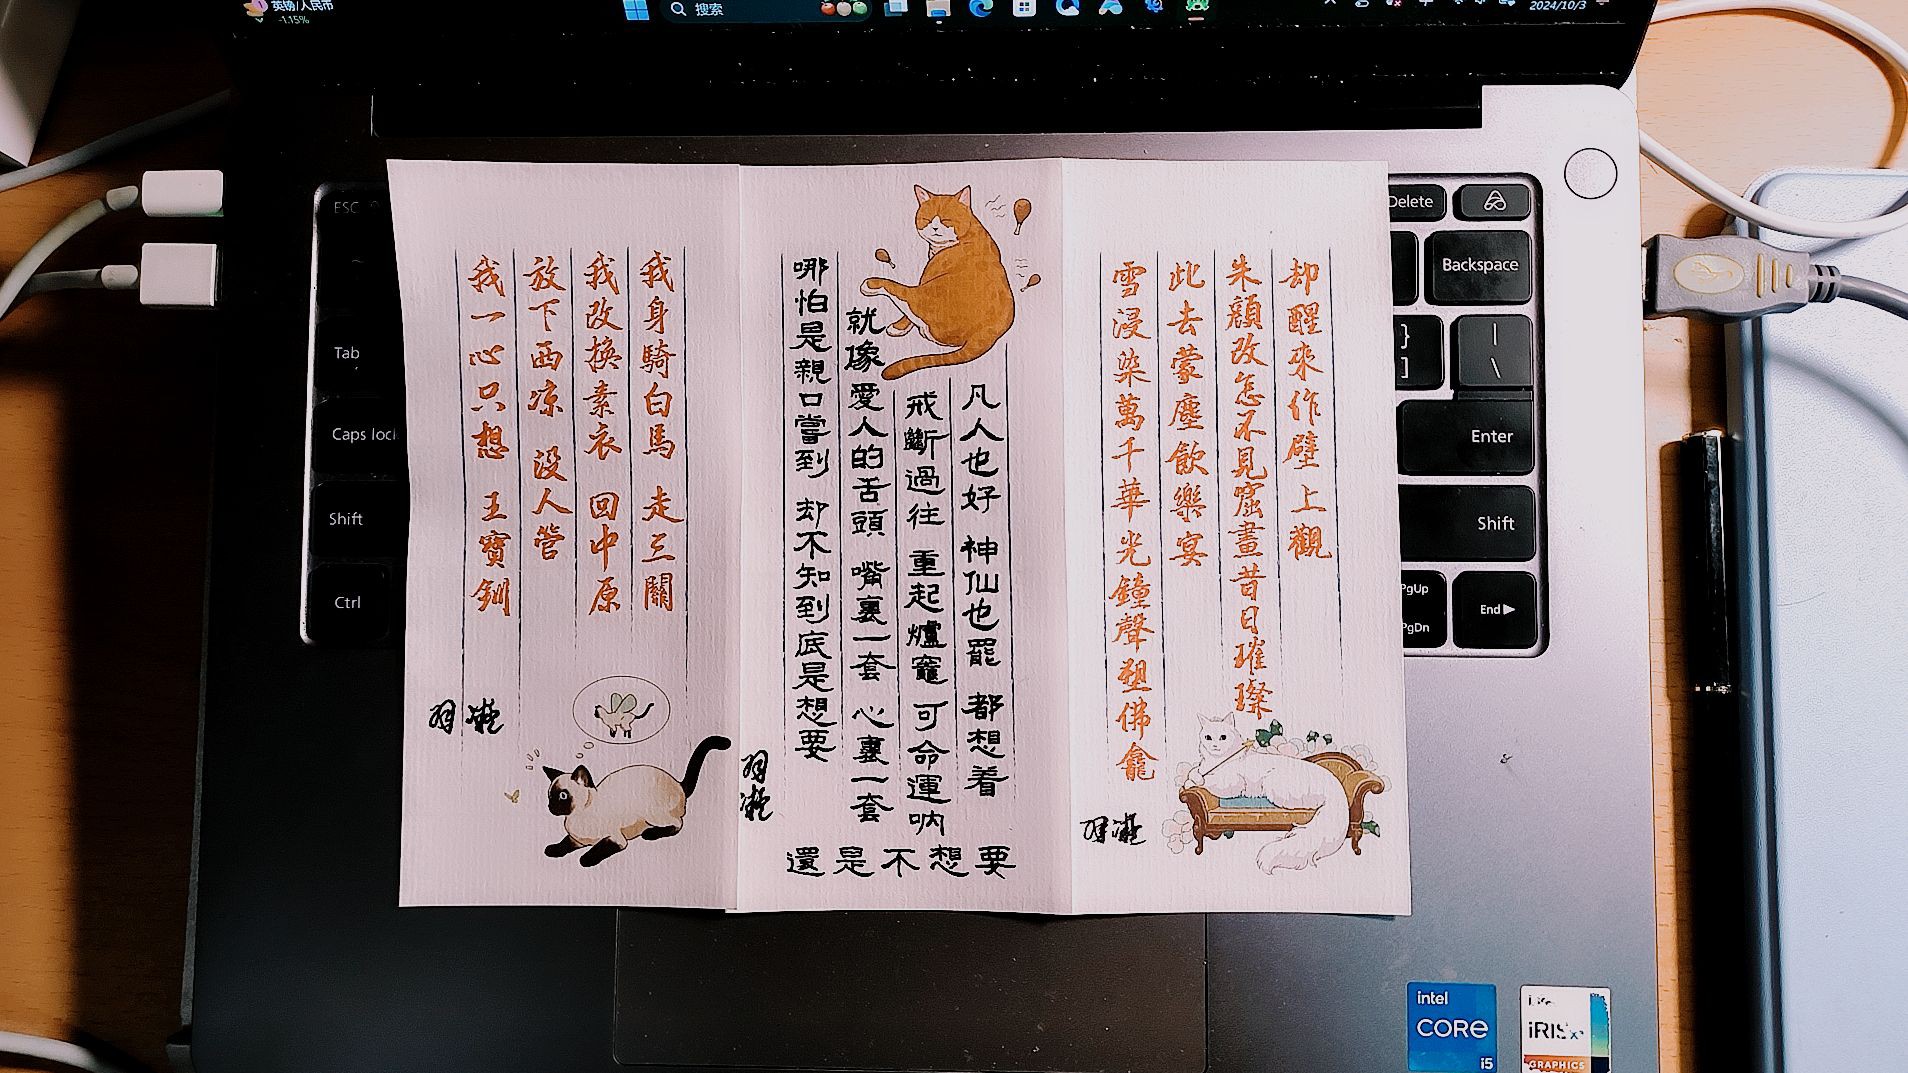 英镑/人民币
-1.15%
搜索
2024/10/3
ESC
Tab
Caps loc
Shift
Ctrl
Delete
Backspace
}
]
|
\
Enter
Shift
PgUp
PgDn
End
却醒來作壁上觀
朱顏改怎不見窟畫昔日璀璨
此去蒙塵飲樂宴
雪浸染萬千華光鐘聲塑佛龕
凡人也好 神仙也罷 都想着
戒斷過往 重起爐竈 可命運吶
就像愛人的舌頭 嘴裏一套 心裏一套
哪怕是親口嘗到 却不知到底是想要
還是不想要
我身騎白馬 走三關
我改換素衣 回中原
放下西凉 没人管
我一心只想 王寶釧
intel
CORE
i5
iRIS xe
GRAPHICS